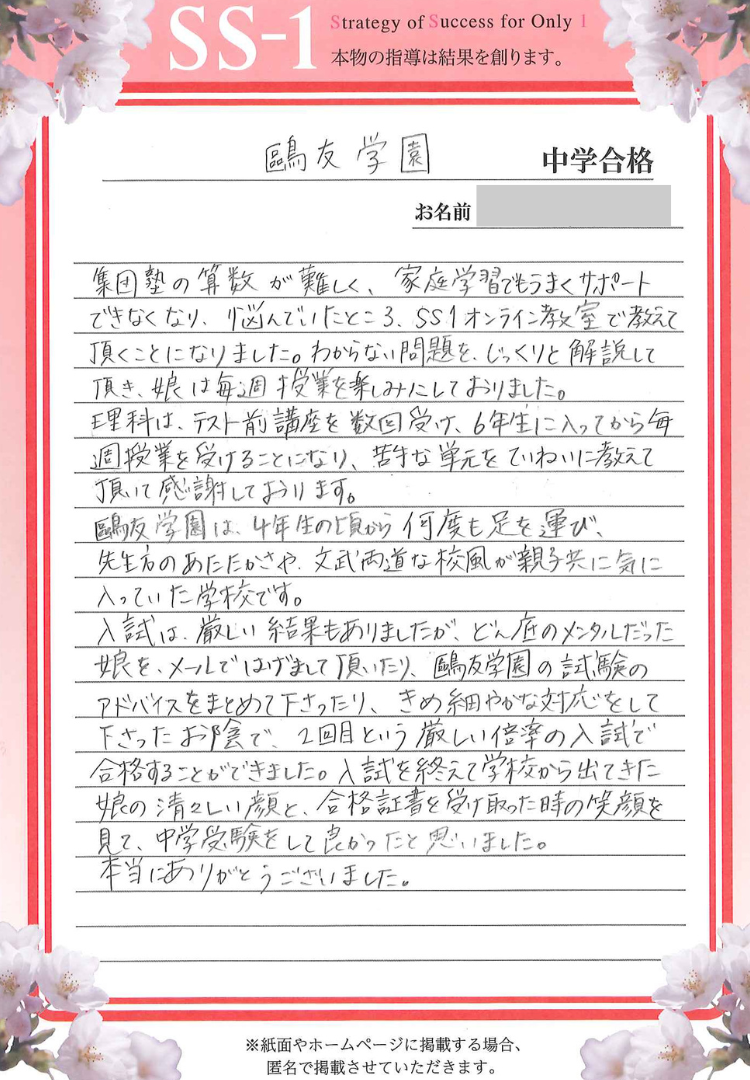 SS-1 Strategy of Success for Only 1
本物の指導は結果を創ります。
鷗友学園 中学合格
お名前
集団塾の算数が難しく、家庭学習でもうまくサポート
できなくなり、悩んでいたところ、SS1オンライン教室で教えて
頂くことになりました。わからない問題を、じっくりと解説して
頂き、娘は毎週授業を楽しみにしておりました。
理科は、テスト前講座を数回受け、6年生に入ってから毎
週授業を受けることになり、苦手な単元をていねいに教えて
頂いて感謝しております。
鷗友学園は、4年生の頃から何度も足を運び、
先生方のあたたかさや、文武両道な校風が親子共に気に
入っていた学校です。
入試は、厳しい結果もありましたが、どん底のメンタルだった
娘を、メールではげまして頂いたり、鷗友学園の試験の
アドバイスをまとめて下さったり、きめ細やかな対応をして
下さったお陰で、2回目という厳しい倍率の入試で
合格することができました。入試を終えて学校から出てきた
娘の清々しい顔と、合格証書を受け取った時の笑顔を
見て、中学受験をして良かったと思いました。
本当にありがとうございました。
※紙面やホームページに掲載する場合、
匿名で掲載させていただきます。